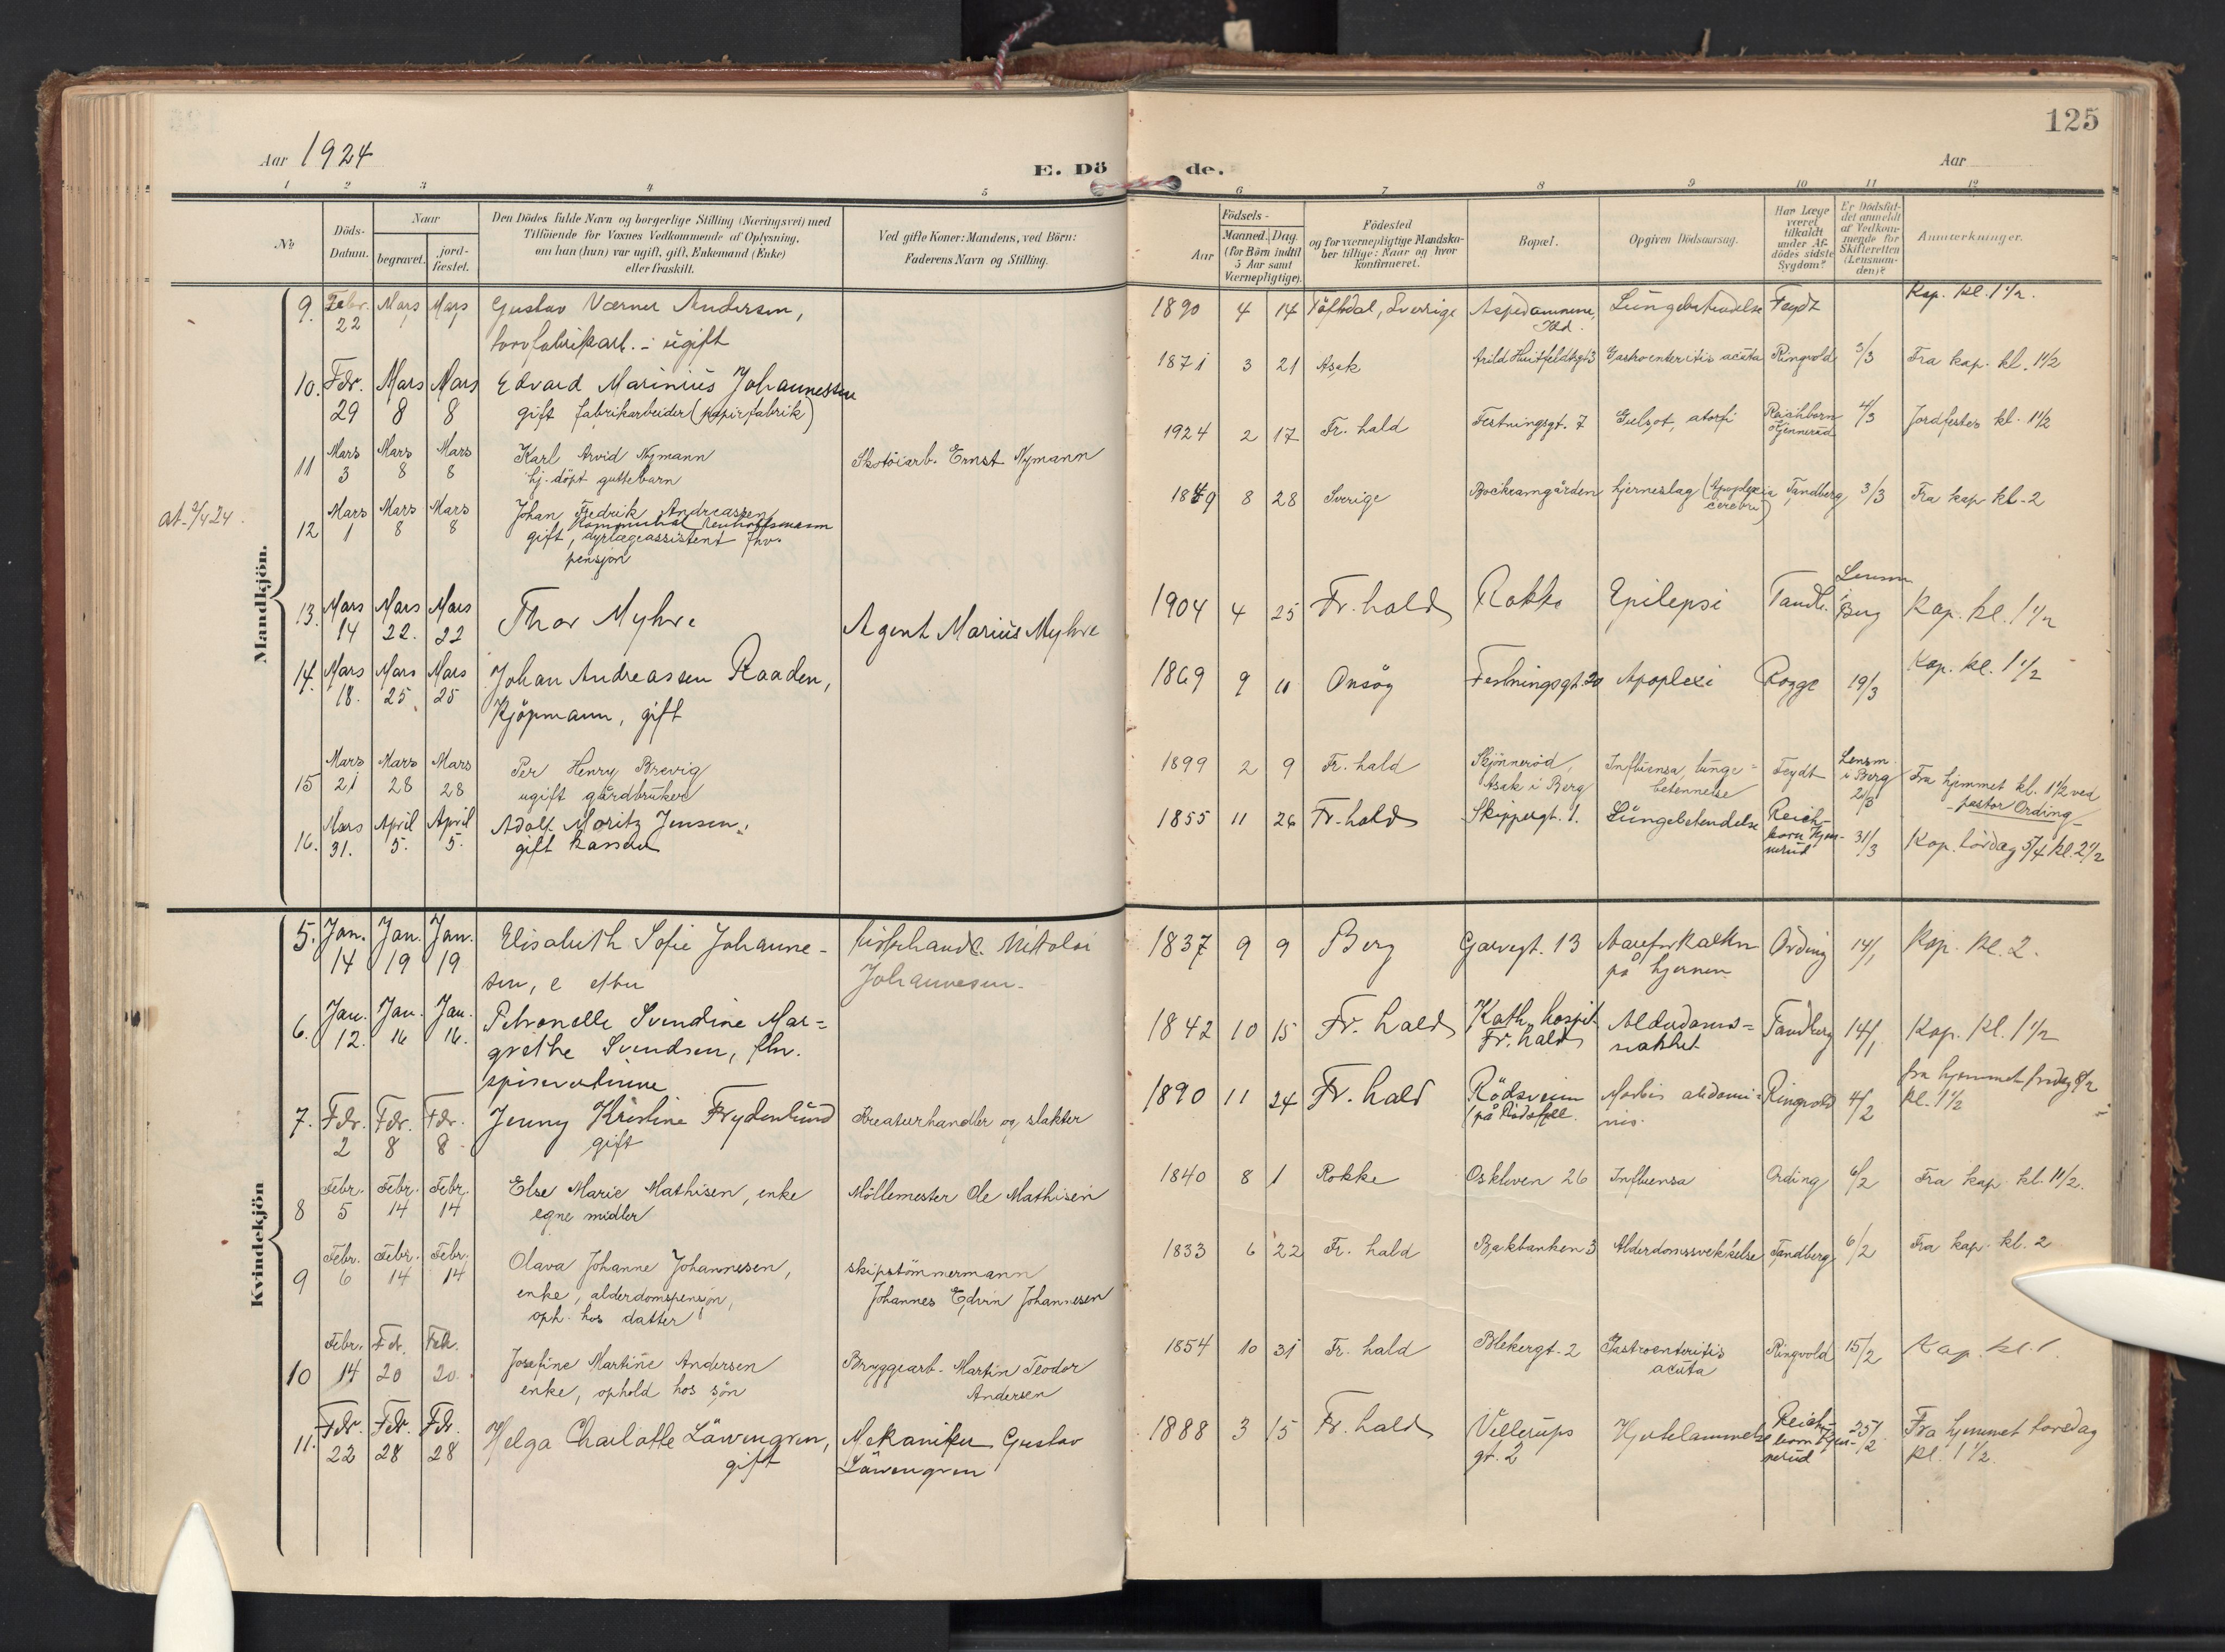 125
Aar 1924
E. Dö
de.
Aar
1 2 3 4 5 6 7 8 9 10 11 12
No
Döds-
Datum.
Naar
begravet.
jord-
fæstet.
Den Dödes fulde Navn og borgerlige Stilling (Næringsvei) med
Tilföiende for Voxnes Vedkommende af Oplysning,
om han (hun) var ugift, gift, Enkemand (Enke)
eller fraskilt.
Ved gifte Koner: Mandens, ved Börn:
Faderens Navn og Stilling.
Födsels-
Aar
Maaned. Dag
(for Börn indtil
5 Aar samt
Værnepligtige).
Födested
og for værnepligtige Mandska-
ber tillige: Naar og hvor
konfirmeret.
Bopæl.
Opgiven Dödsaarsag.
Har Læge
været
tilkaldt
under Af-
dödes sidste
Sygdom?
Er Dödsfal-
det anmeldt
af Vedkom-
mende for
Skifteretten
(Lensman-
den)?
Anmærkninger.
Mandkjön.
9. Febr. 22 Mars 1 Mars 1 Gustav Verner Andersen,
torvfabrikarb. - ugift
1890 4 14 Töftedal, Sverige Aspedammene, Idd. Lungebetendelse Feydt Kap. kl. 1 1/2.
10. Febr. 29 Mars 8 Mars 8 Edvard Marinius Johannessen
gift fabrikarbeider (papirfabrik)
1871 3 21 Asak Arild Huitfeldtsgt 3 Gastroenteritis acuta Ringvold 3/3 Fra kap. kl. 1 1/2
11 Mars 3 Mars 8 Mars 8 Karl Arvid Nymann
hj. döpt guttebarn
Skotöiarb. Ernst Nymann
1924 2 17 Fr. hald Festningsgt. 7 Gulsot, atrofi Reichborn Kjennerud 4/3 Jordfestes kl. 1 1/2
at. 2/4 24.
12 Mars 1 Mars 8 Mars 8 Johan Fredrik Andreassen
kommunal renholdsmann
gift, dyrlægeassistent
pensjon
1849 8 28 Sverige Bockramgården hjerneslag (Apoplexia cerebri) Tandberg 3/3 Fra kap kl. 2
13. Mars 14 Mars 22. Mars 22 Thor Myhre
Agent Marius Myhre
1904 4 25 Fr. hald Rokke Epilepsi Tandb. Lensm. i Berg Kap. kl. 1 1/2
14. Mars 18. Mars 25 Mars 25 Johan Andreassen Raaden,
Kjöpmann, gift
1869 9 11 Onsöy Festningsgt. 20 Apoplexi Rogge 19/3 Kap. kl. 1 1/2
15 Mars 21 Mars 28 Mars 28 Per Henry Brevig
ugift gårdbruker
1899 2 9 Fr. hald Skjönneröd, Asak i Berg Influensa, lungebetennelse Feydt Lensm. i Berg 21/3 Fra hjemmet kl. 1 1/2 ved
pastor Ording
16. Mars 31. April 5. April 5. Adolf Moritz Jensen,
gift kasserer
1855 11 26 Fr. hald Skippergt. 1. Lungebetendelse Reichborn Kjennerud 31/3 Kap. lördag 5/4 kl. 2 1/2
Kvindekjön
5. Jan. 14 Jan. 19 Jan. 19 Elisabeth Sofie Johanne-
sen, e efter
fiskehandl. Nikolai
Johannesen.
1837 9 9 Berg Garvergt. 13 Aareforkalkn. på hjernen Ording 14/1 Kap. kl. 2.
6. Jan. 12. Jan. 16 Jan. 16. Petronelle Svendine Mar-
grethe Svendsen, fhv.
spisevertinne
1842 10 15 Fr. hald Kath. hospit. Fr. hald Alderdoms-svakhet Tandberg 14/1 Kap. kl. 1 1/2
7. Febr. 2 Febr. 8 Febr. 8 Jenny Kristine Frydenlund
gift
Kreaturhandler og slakter
1890 11 24 Fr. hald Rödsveien (på Rödsfjell. Morbus abdominis. Ringvold 4/2 fra hjemmet fredag 8/2
kl. 1 1/2
8 Febr. 5 Febr. 14 Febr. 14 Else Marie Mathisen, enke
egne midler
Möllemester Ole Mathisen
1840 8 1 Rokke Oskleven 26 Influensa Ording 6/2 Fra kap. kl. 1 1/2.
9 Febr. 6 Febr. 14 Febr. 14 Olava Johanne Johannesen,
enke, alderdomspensjon,
oph. hos datter
skipstömmermann
Johannes Edvin Johannesen
1833 6 22 Fr. hald Bakbanken 3 Alderdomssvekkelse Tandberg 6/2 Fra kap. kl. 2
10 Febr. 14 Febr. 20 Febr. 20. Josefine Martine Andersen
enke, ophold hos sön
Bryggearb. Martin Teodor
Andersen
1854 10 31 Fr. hald Blekergt. 2 Gastroenteritis acuta Ringvold 15/2 Kap. kl. 1.
11. Febr. 22 Febr. 28 Febr. 28 Helga Charlotte Låwengren,
gift
Mekaniker Gustav
Låwengren
1888 3 15 Fr. hald Vellerups gt. 2 Hjertelammelse Reichborn Kjennerud 25/2 Fra hjemmet torsdag
kl. 1 1/2.